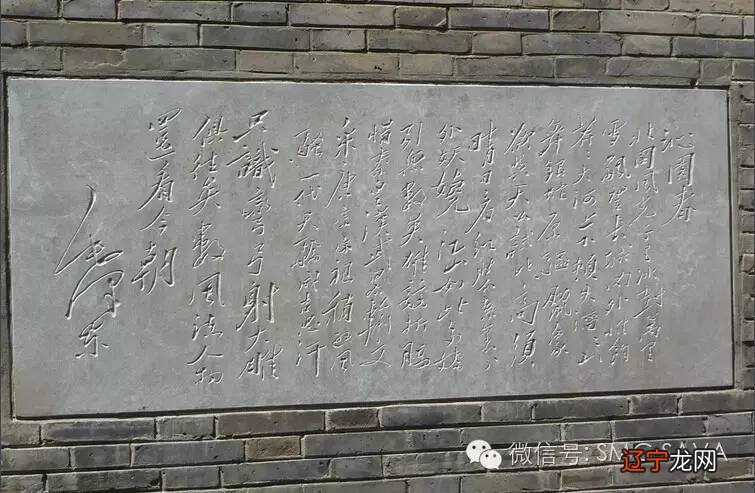 沁園春
北国风光千里冰封万里
雪飘望长城内外惟馀
莽莽大河上下顿失滔滔山
舞銀蛇原驰臘象
欲与天公試比高須
晴日看红装素裹分
外妖嬈江山如此多娇
引無数英雄競折腰
惜秦皇漢武略輸文
采唐宗宋祖稍逊风
骚一代天驕成吉思汗
只識彎弓射大雕
俱往矣數風流人物
還看今朝
毛泽东
微信号: SMG SAVA
辽宁龙网